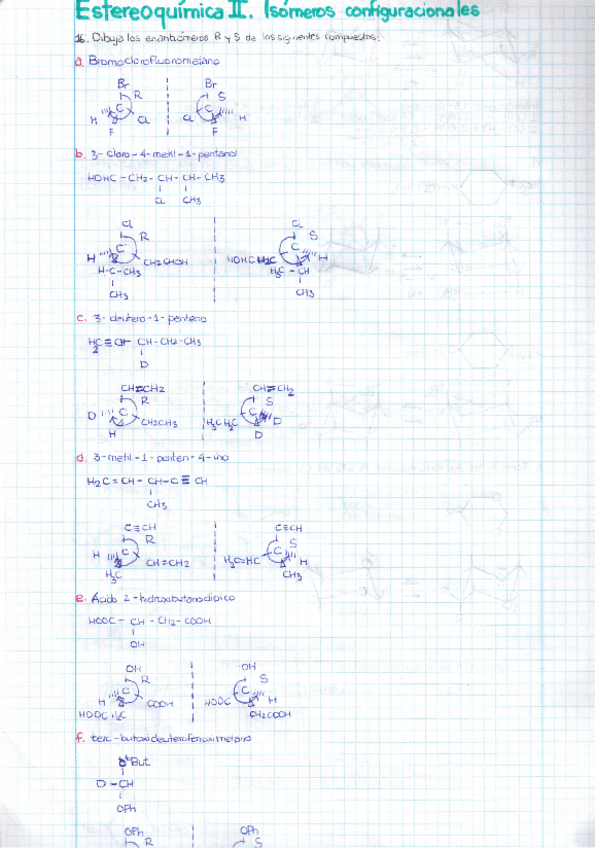 Estereoquímica II. Isómeros configuracionales
16. Dibuja los enantiómeros R y S de los siguientes compuestos:
a. Bromoclorofluorometano
Br Br
R S
H C Cl Cl C H
F F
b. 3-cloro-4-metil-1-pentanol
HOHC - CH2 - CH - CH - CH3
CL CH3
Cl Cl
R S
H C CH2CHOH HOHC H2C C H
H-C-CH3 H3C - CH
CH3 CH3
c. 3-deutero-1-penteno
HC = CH CH - CH2 - CH3
2
D
CH=CH2 CH=CH2
R S
D C CH2CH3 H3C H2C C D
H D
d. 3-metil-1-penten-4-ino
H2C = CH - CH - C ≡ CH
CH3
C≡CH C≡CH
R S
H C CH=CH2 H2C=HC C H
H3C CH3
e. Ácido 2-hidroxibutanodioico
HOOC - CH - CH2 - COOH
OH
OH OH
R S
H C COOH HOOC C H
HOOC H2C CH2COOH
f. terc-butoxideuterofenoximetano
But
D - CH
OPh
OPh OPh
R S